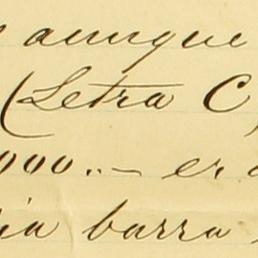 aunque
(Letra C)
000.. — er
ia barra